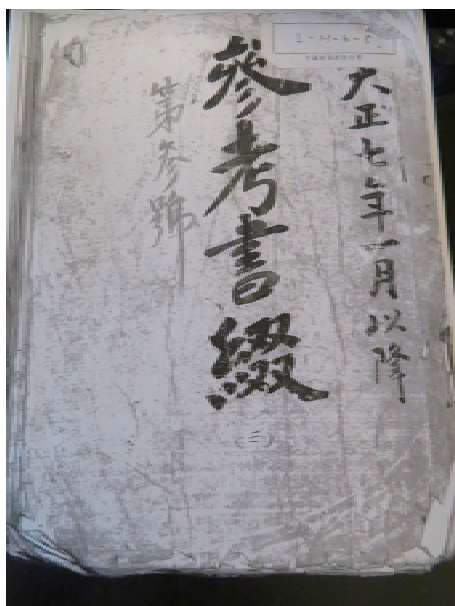 大正七年一月以降
參考書綴
(三)
第参號